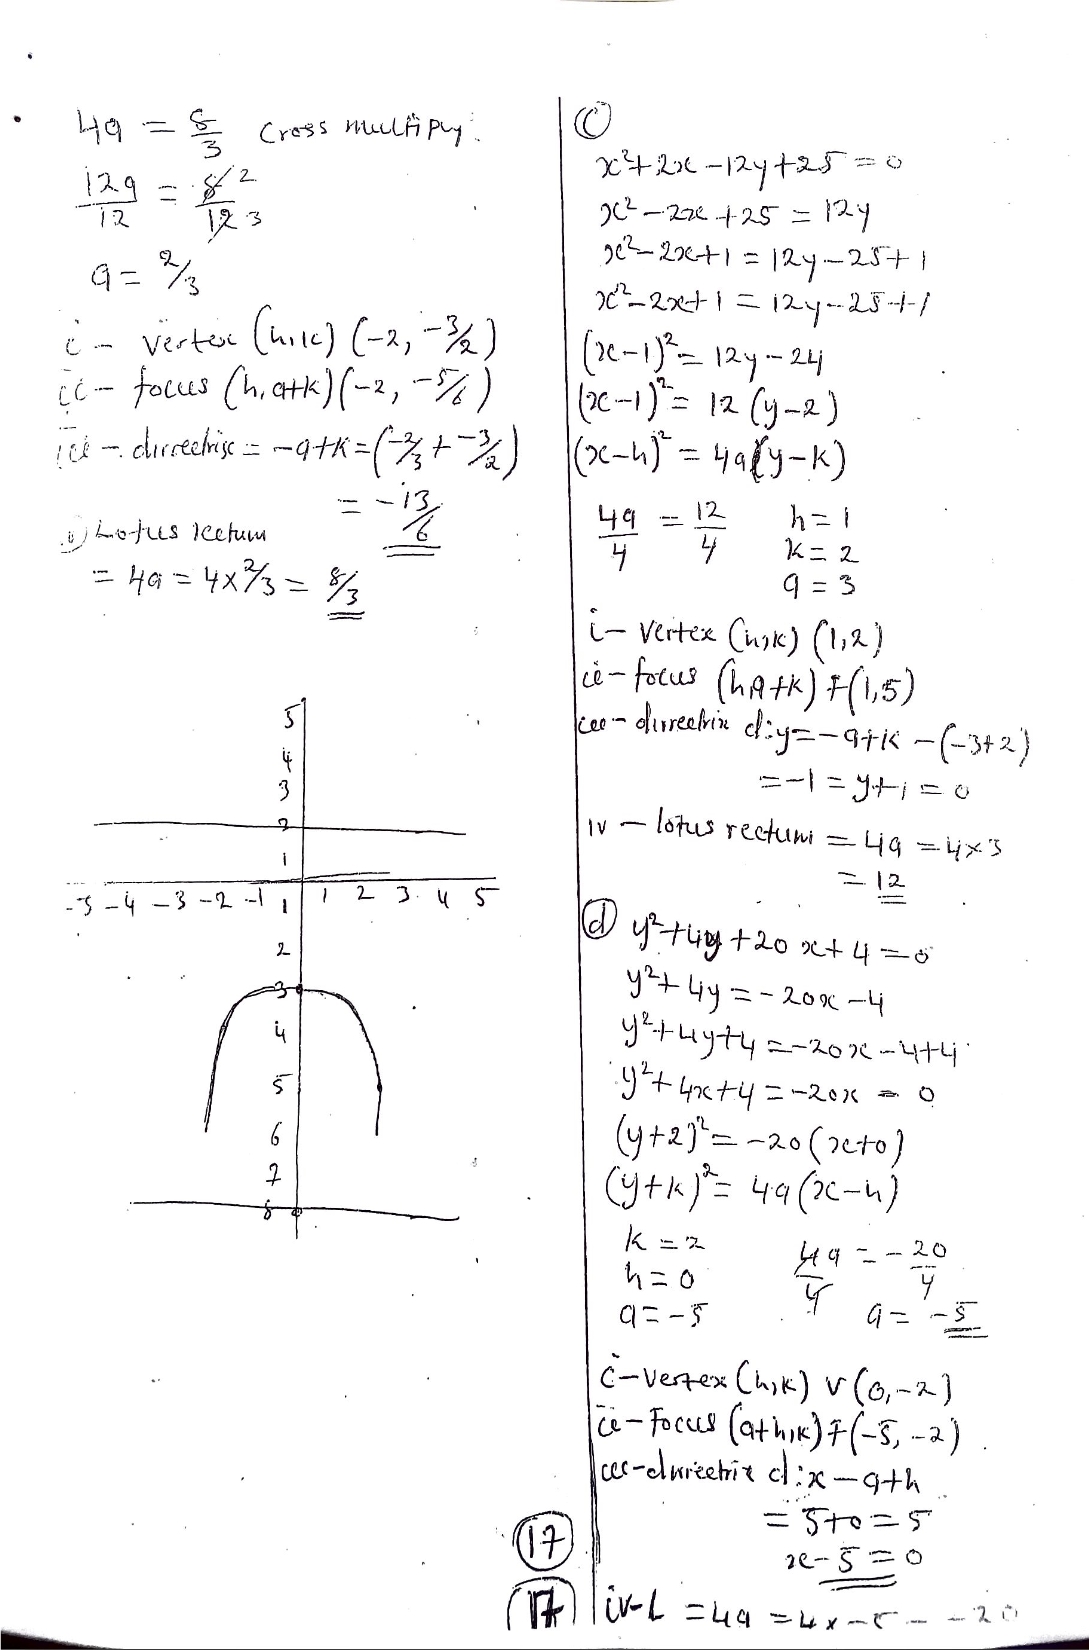 4a = 8/3 Cross multiply:
12a/12 = 8/12 2 3
a = 2/3
i - vertex (h,k) (-2, -3/2)
ii - focus (h, a+k) (-2, -5/6)
iii - dirrectrix = -a+k = (-2/3 + -3/2)
= -13/6
Lotus rectum
= 4a = 4x2/3 = 8/3
5
4
3
2
1
-5 -4 -3 -2 -1 1 1 2 3 4 5
2
3
4
5
6
7
8
(c)
x²+2x-12y+25 = 0
x²-2x+25 = 12y
x²-2x+1 = 12y-25+1
x²-2x+1 = 12y-25+1
(x-1)² = 12y-24
(x-1)² = 12(y-2)
(x-h)² = 4a(y-k)
4a/4 = 12/4 h=1
k=2
a=3
i- Vertex (h,k) (1,2)
ii- focus (h,a+k) F(1,5)
iii- dirrectrix d:y=-a+k -(-3+2)
=-1 = y+1 = 0
iv - lotus rectum = 4a = 4x3
= 12
(d) y²+4y+20x+4=0
y²+4y = -20x-4
y²+4y+4 = -20x-4+4
y²+4x+4 = -20x = 0
(y+2)² = -20(x+0)
(y+k)² = 4a(x-h)
k = 2
h = 0
a = -5
4a/4 = -20/4
a = -5
i-Vertex (h,k) V(0,-2)
ii- Focus (a+h,k) F(-5,-2)
iii-dirrectrix d:x-a+h
= 5+0 = 5
x-5 = 0
17
17
iv-L = 4a = 4x-5 - -20